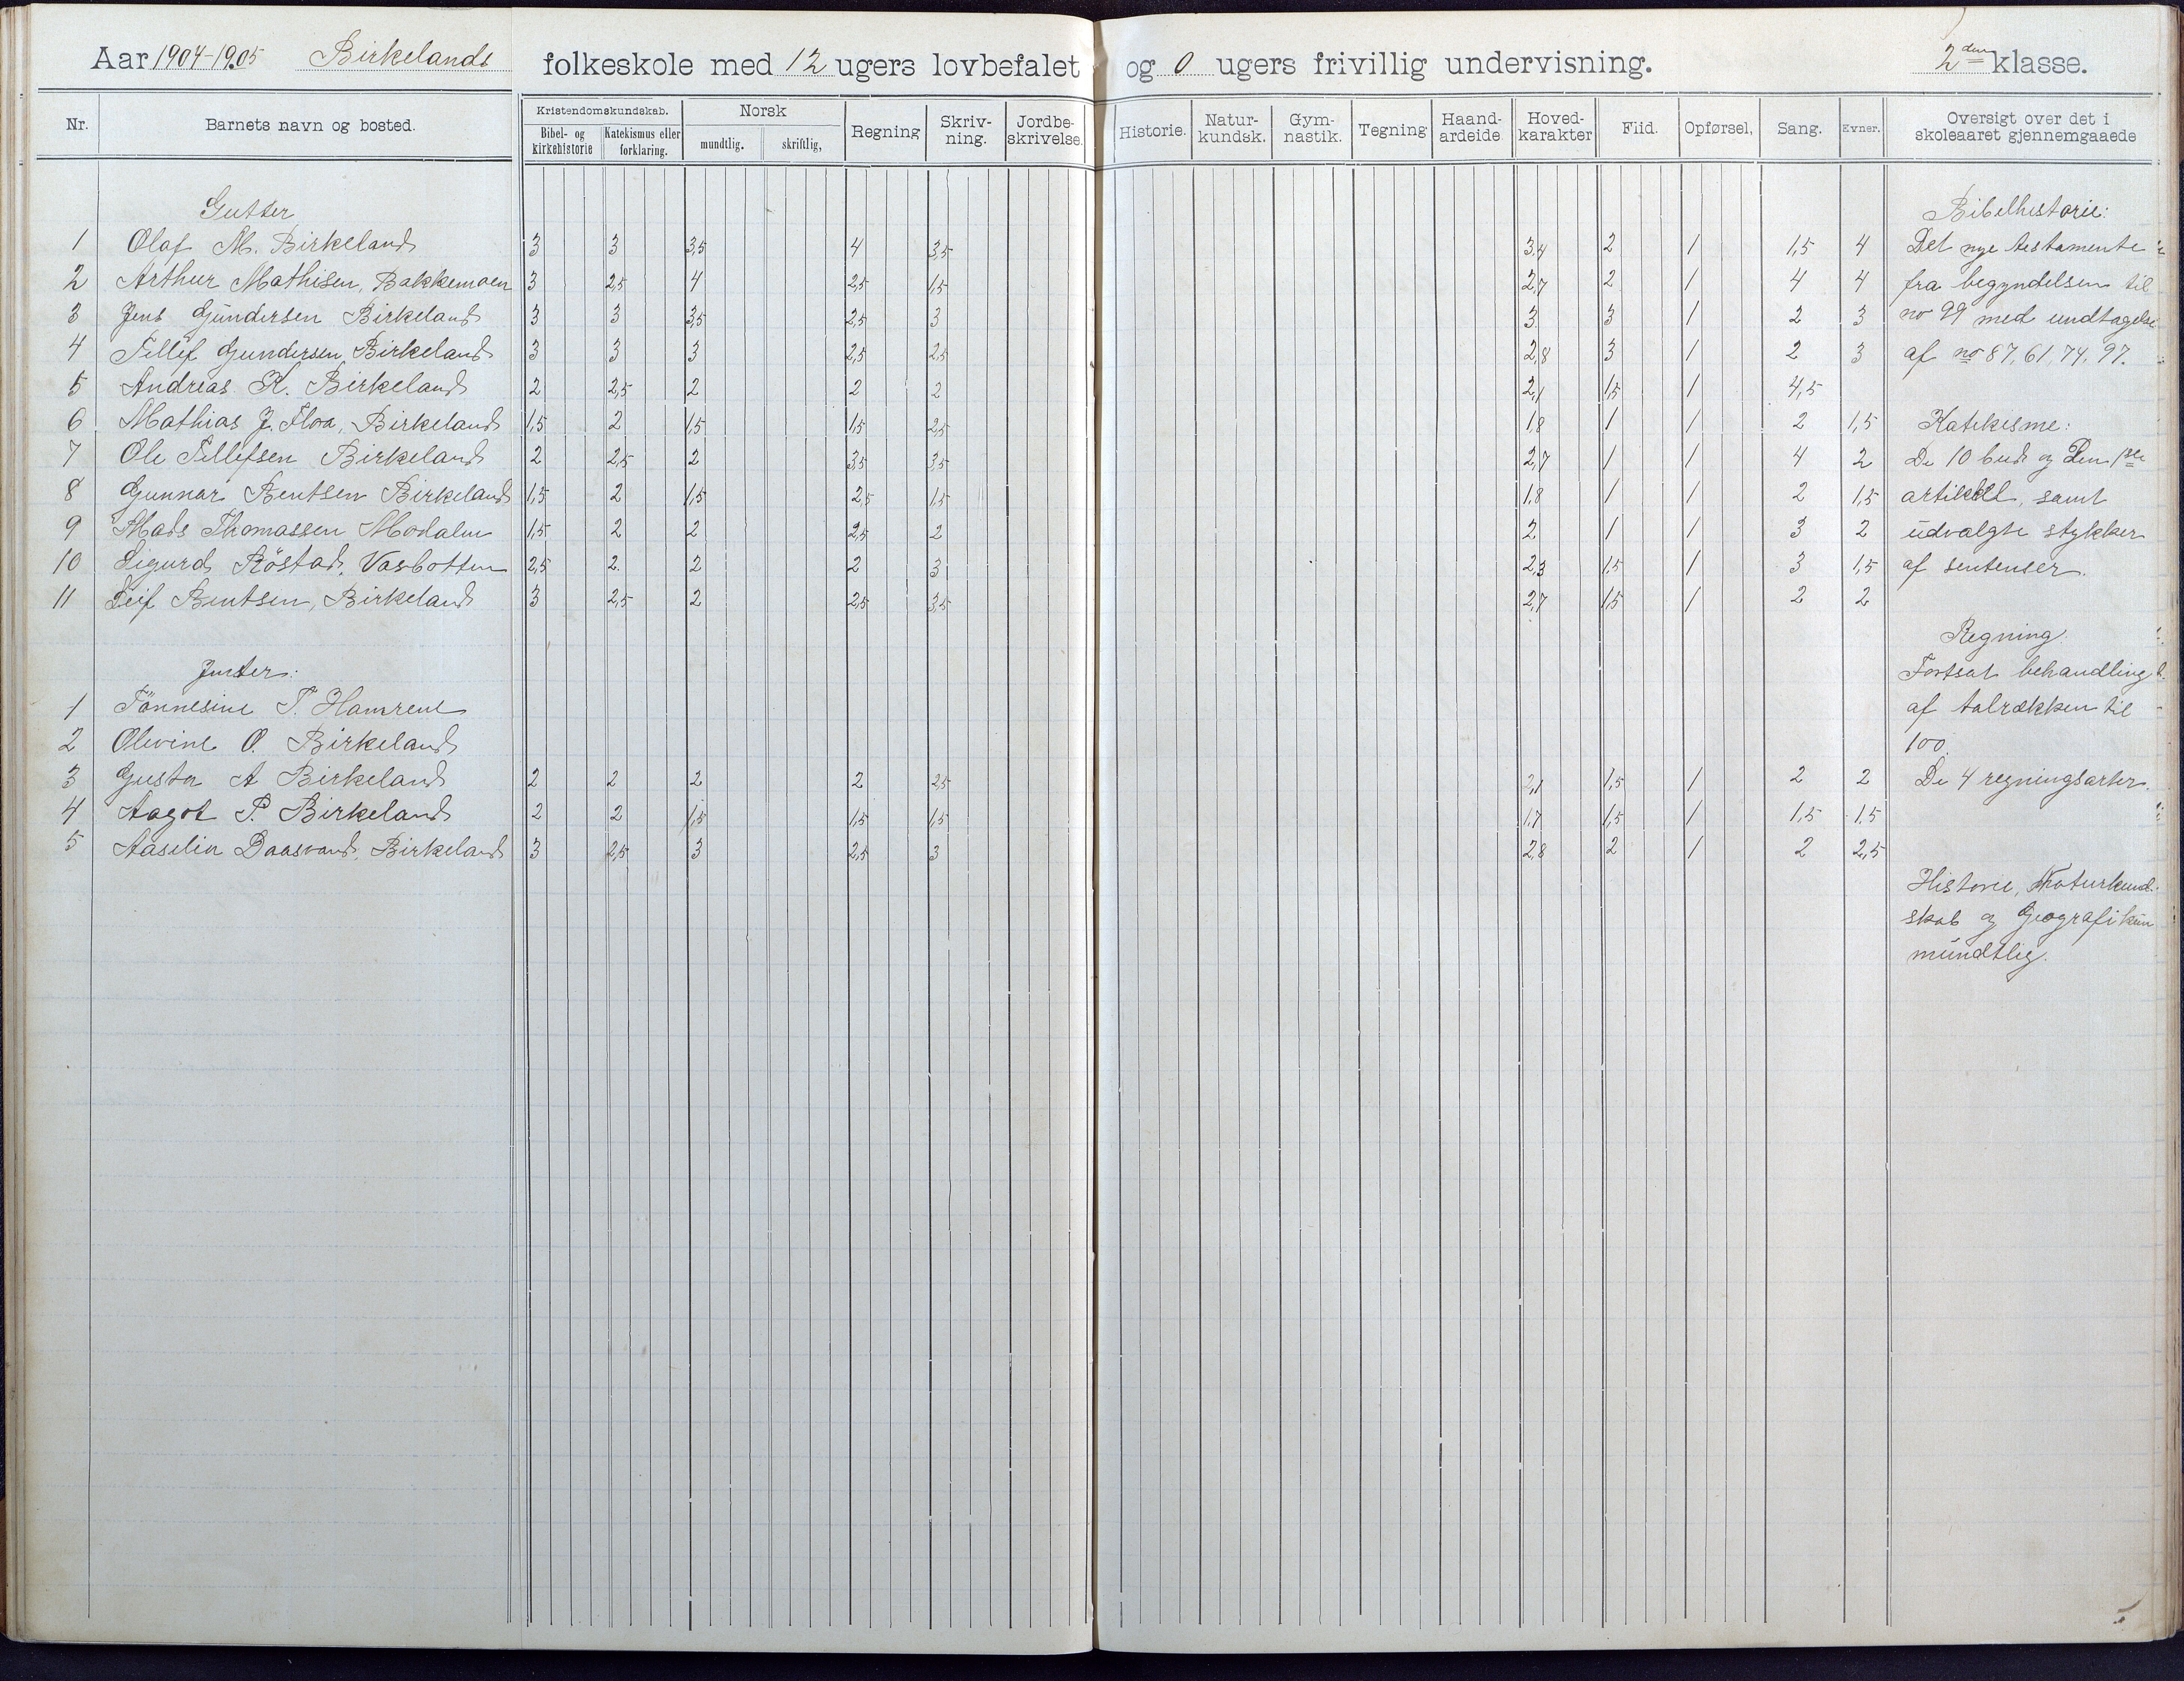 Aar 1904-1905 Birkelands folkeskole med 12 ugers lovbefalet og 0 ugers frivillig undervisning. 2den klasse.
Nr. Barnets navn og bosted. Kristendomskundskab. Bibel- og kirkehistorie Katekismus eller forklaring. Norsk mundtlig. skriftlig, Regning Skriv-ning. Jordbe-skrivelse. Historie. Natur-kundsk. Gym-nastik. Tegning Haand-arbeide Hoved-karakter Flid. Opførsel, Sang. Evner. Oversigt over det i skoleaaret gjennemgaaede
Gutter
1 Olaf M. Birkeland 3 3 3,5 4 3,5 3,4 2 1 1,5 4
2 Arthur Mathisen, Bakkemoen 3 2,5 4 2,5 1,5 2,7 2 1 4 4
3 Jens Gundersen Birkeland 3 3 3,5 2,5 3 3 3 1 2 3
4 Tellef Gundersen Birkeland 3 3 3 2,5 2,5 2,8 3 1 2 3
5 Andreas K. Birkeland 2 2,5 2 2 2 2,1 1,5 1 4,5
6 Mathias J. Floa, Birkeland 1,5 2 1,5 1,5 2,5 1,8 1 1 2 1,5
7 Ole Tellefsen Birkeland 2 2,5 2 3,5 3,5 2,7 1 1 4 2
8 Gunnar Bentsen Birkeland 1,5 2 1,5 2,5 1,5 1,8 1 1 2 1,5
9 Mads Thomassen Modalen 1,5 2 2 2,5 2 2 1 1 3 2
10 Sigurd Röstad, Vasbotten 2,5 2. 2 2 3 2,3 1,5 1 3 1,5
11 Leif Bentsen, Birkeland 3 2,5 2 2,5 3,5 2,7 1,5 1 2 2
Jenter:
1 Tönnesine T. Hamrene
2 Olevine O. Birkeland
3 Gusta A Birkeland 2 2 2 2 2,5 2,1 1,5 1 2 2
4 Aagot P. Birkeland 2 2 1,5 1,5 1,5 1,7 1,5 1 1,5 1,5
5 Aaselin Daasvand, Birkeland 3 2,5 3 2,5 3 2,8 2 1 2 2,5
Bibelhistorie:
Det nye testamente
fra begyndelsen til
no 99 med undtagelse
af no 87, 61, 74, 97.
Katekisme:
De 10 bud og Den 1ste
artikkel, samt
udvalgte stykker
af sentenser.
Regning:
Fortsat behandling
af talrækken til
100.
De 4 regningsarter.
Historie, Naturkund-
skab og Geografi kun
mundtlig.